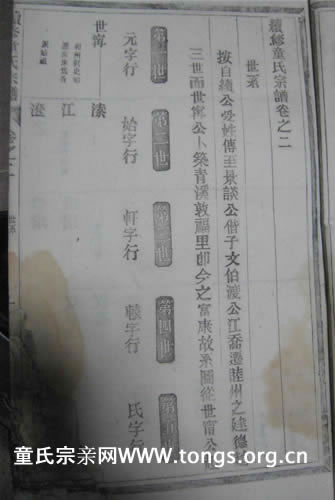 續修童氏宗譜卷之二
世系
按自續公受姓傳至景談公偕子文伯渡公江喬遷睦州之建德
三世而世甯公卜築青溪敦福里即今之富康故系圖從世甯公
第一世
第二世
第三世
第四世
第五世
元字行
始字行
軒字行
轅字行
氏字行
世甯
江
卷之二
世系
童氏宗亲网www.tongs.org.cn